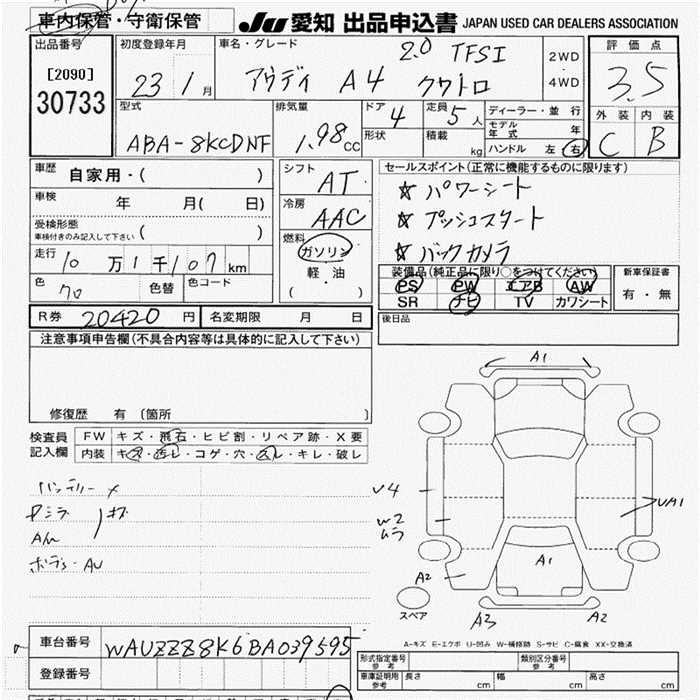 車内保管・守衛保管
JU 愛知 出品申込書 JAPAN USED CAR DEALERS ASSOCIATION
出品番号
[2090]
30733
初度登録年月
23 1月
車名・グレード
2.0 TFSI
アウディ A4 クワトロ
2WD
4WD
評価点
3.5
外装 内装
C B
型式
ABA-8KCDNF
排気量
1.98 CC
ドア 4
形状
定員 5人
積載 kg
ディーラー・並行
モデル年式 年
ハンドル 左 右
車歴
自家用・( )
車検
年 月( 日)
受検形態
車検付きのみ記入して下さい ( )
走行
10万1千107km
色 クロ
色替
色コード
シフト
AT
冷房
AAC
燃料
ガソリン
軽・油
( ・ )
セールスポイント(正常に機能するものに限ります)
☆ パワーシート
☆ プッシュスタート
☆ バックカメラ
装備品(純正品に限り○をつけてください)
PS PW エアB AW
SR ナビ TV カワシート
新車保証書
有・無
R券 20420円
名変期限 月 日
後日品
注意事項申告欄(不具合内容等は具体的に記入して下さい)
修復歴 有 〔箇所 〕
検査員記入欄
FW キズ・飛石・ヒビ割・リペア跡・X要
内装 キズ・汚レ・コゲ・穴・スレ・キレ・破レ
バッテリー×
AW
キズ
A1
V4
W2
ムラ
UA1
A1
A2
A3
A2
スペア
A-キズ E-エクボ U-凹み W-補修跡 S-サビ C-腐食 XX-交換済
車台番号
WAUZZZ8K6BA039595
登録番号
形式指定番号
参考
類別区分番号
参考
車庫証明用
参考
長さ cm
幅 cm
高さ cm